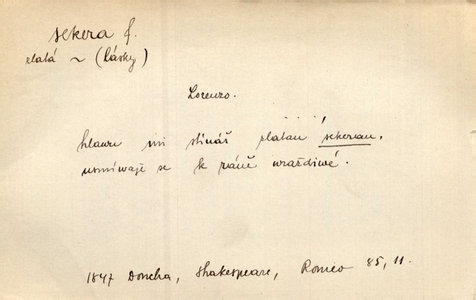 sekera f.
zlatá ~ (lásky)
Lorenzo.
hlawu mi stínáš zlatau sekerau,
usmíwaje se k ráně wraždiwé.
1847 Doucha, Shakespeare, Romeo 85, 11.